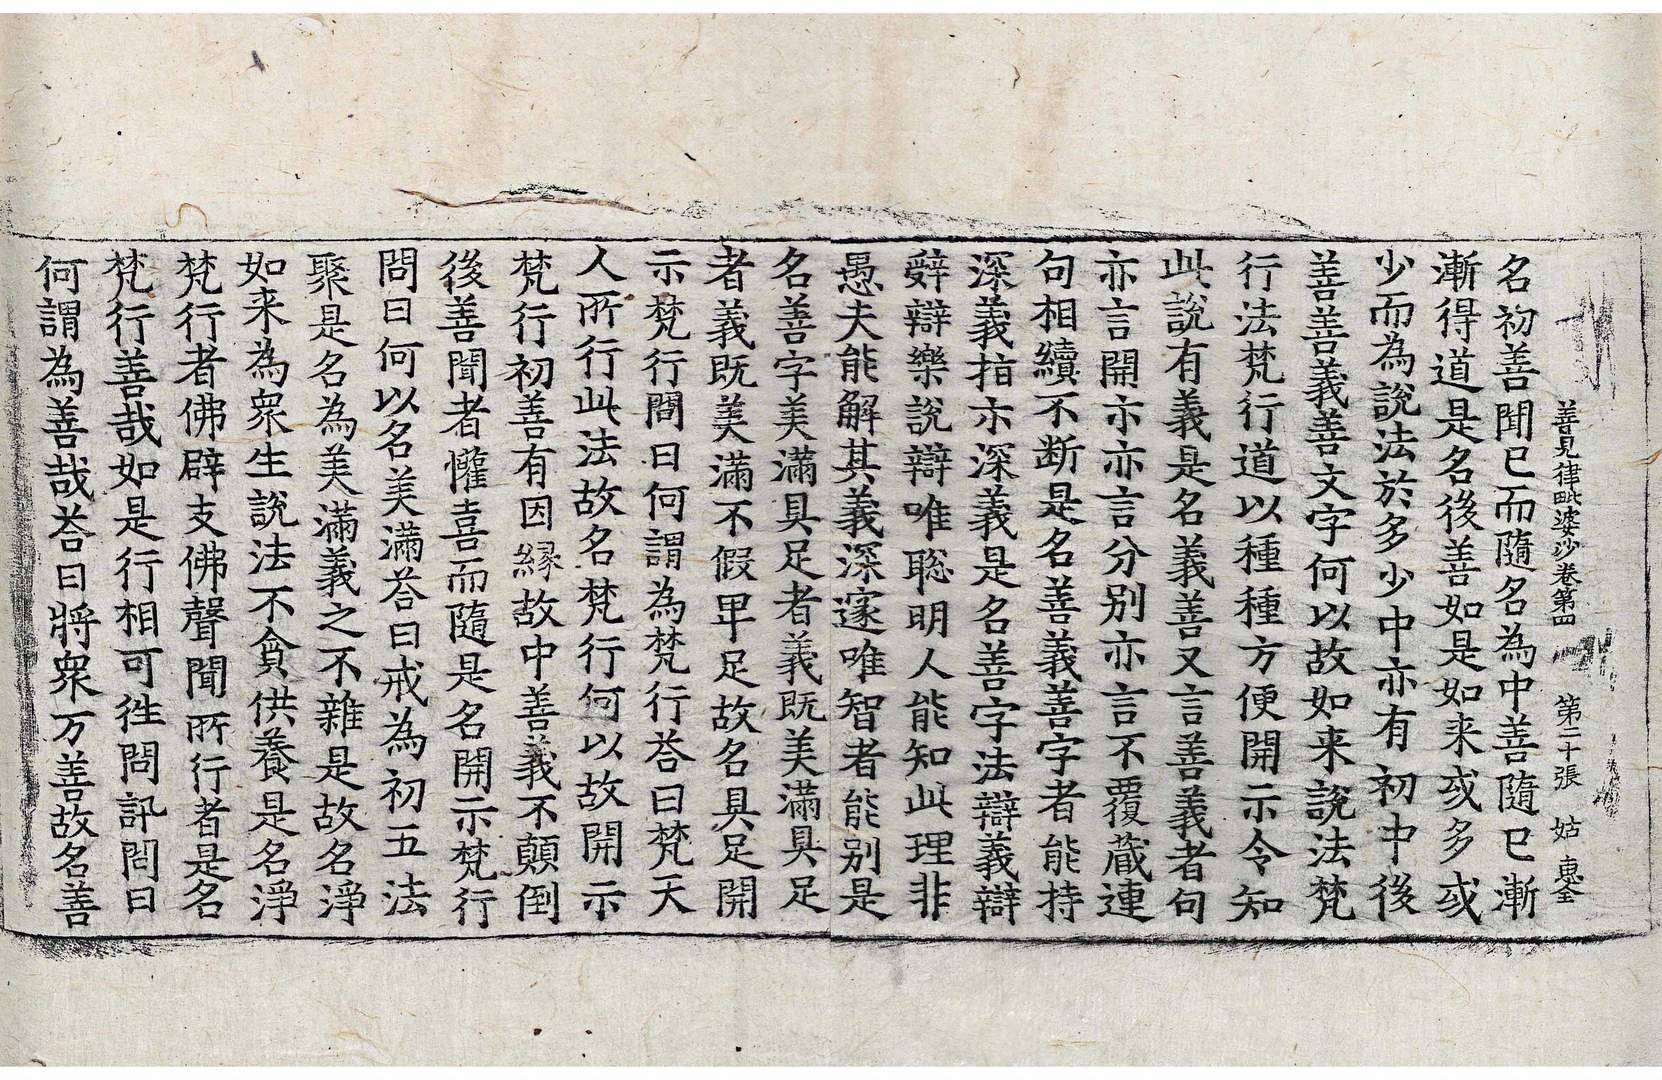 善見律毗婆沙卷第四 第二十張 姑 惠全
名初善聞已而隨名為中善隨已漸
漸得道是名後善如是如来或多或
少而為說法於多少中亦有初中後
善善義善文字何以故如来說法梵
行法梵行道以種種方便開示令知
此說有義是名義善又言善義者句
亦言開亦亦言分別亦言不覆蔵連
句相續不断是名善義善字者能持
深義指示深義是名善字法辯義辯
辤辯樂說辯唯聡明人能知此理非
愚夫能解其義義深邃唯智者能別是
名善字美滿具足者義既美滿具足
者義既美滿不假早足故名具足開
示梵行問曰何謂為梵行荅曰梵天
人所行此法故名梵行何以故開示
梵行初善有因縁故中善義不顛倒
後善聞者懽喜而隨是名開示梵行
問曰何以名美滿荅曰戒為初五法
聚是名為美滿義之不雜是故名淨
如来為衆生說法不貪供養是名淨
梵行者佛辟支佛聲聞所行者是名
梵行善哉如是行相可徃問訊問曰
何謂為善哉荅曰將衆万善故名善